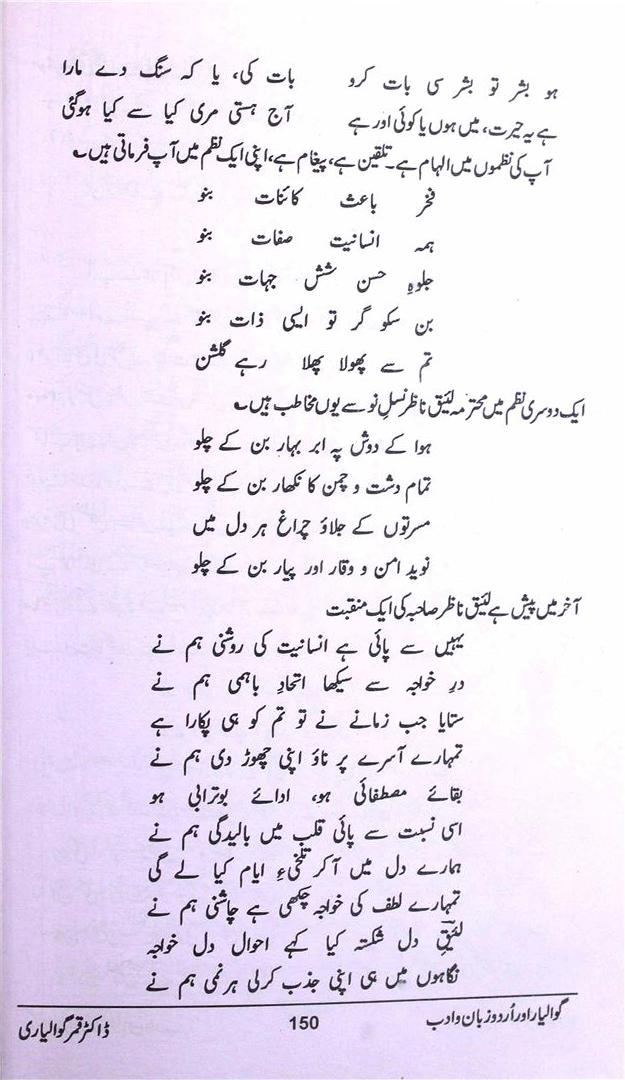 ہو بشر تو بشر سی بات کرو بات کی، یا کہ سنگ دے مارا
ہے یہ حیرت، میں ہوں یا کوئی اور ہے آج ہستی مری کیا سے کیا ہوگئی
آپ کی نظموں میں الہام ہے۔ تلقین ہے، پیغام ہے، اپنی ایک نظم میں آپ فرماتی ہیں ؎
فخر باعث کائنات بنو
ہمہ انسانیت صفات بنو
جلوہِ حسن شش جہات بنو
بن سکو گر تو ایسی ذات بنو
تم سے پھولا پھلا رہے گلشن
ایک دوسری نظم میں محترمہ لئیق ناظر نسلِ نو سے یوں مخاطب ہیں ؎
ہوا کے دوش پہ ابر بہار بن کے چلو
تمام دشت و چمن کا نکھار بن کے چلو
مسرتوں کے جلاؤ چراغ ہر دل میں
نوید امن و وقار اور پیار بن کے چلو
آخر میں پیش ہے لئیق ناظر صاحبہ کی ایک منقبت
یہیں سے پائی ہے انسانیت کی روشنی ہم نے
درِ خواجہ سے سیکھا اتحادِ باہمی ہم نے
ستایا جب زمانے نے تو تم کو ہی پکارا ہے
تمہارے آسرے پر ناؤ اپنی چھوڑ دی ہم نے
بقائے مصطفائی ہو، ادائے بوترابی ہو
اسی نسبت سے پائی قلب میں بالیدگی ہم نے
ہمارے دل میں آکر تلخیِٔ ایام کیا لے گی
تمہارے لطف کی خواجہ چکھی ہے چاشنی ہم نے
لئیقِؔ دل شکتہ کیا کہے احوال دل خواجہ
نگاہوں میں ہی اپنی جذب کرلی ہر نمی ہم نے
گوالیار اور اُردو زبان و ادب 150 ڈاکٹر قمر گوالیاری